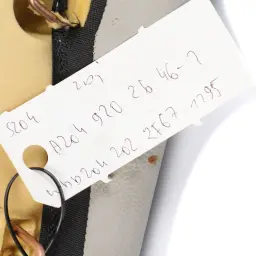 S204
A204 920 26 46-2
wdd204 202 2F67 1195